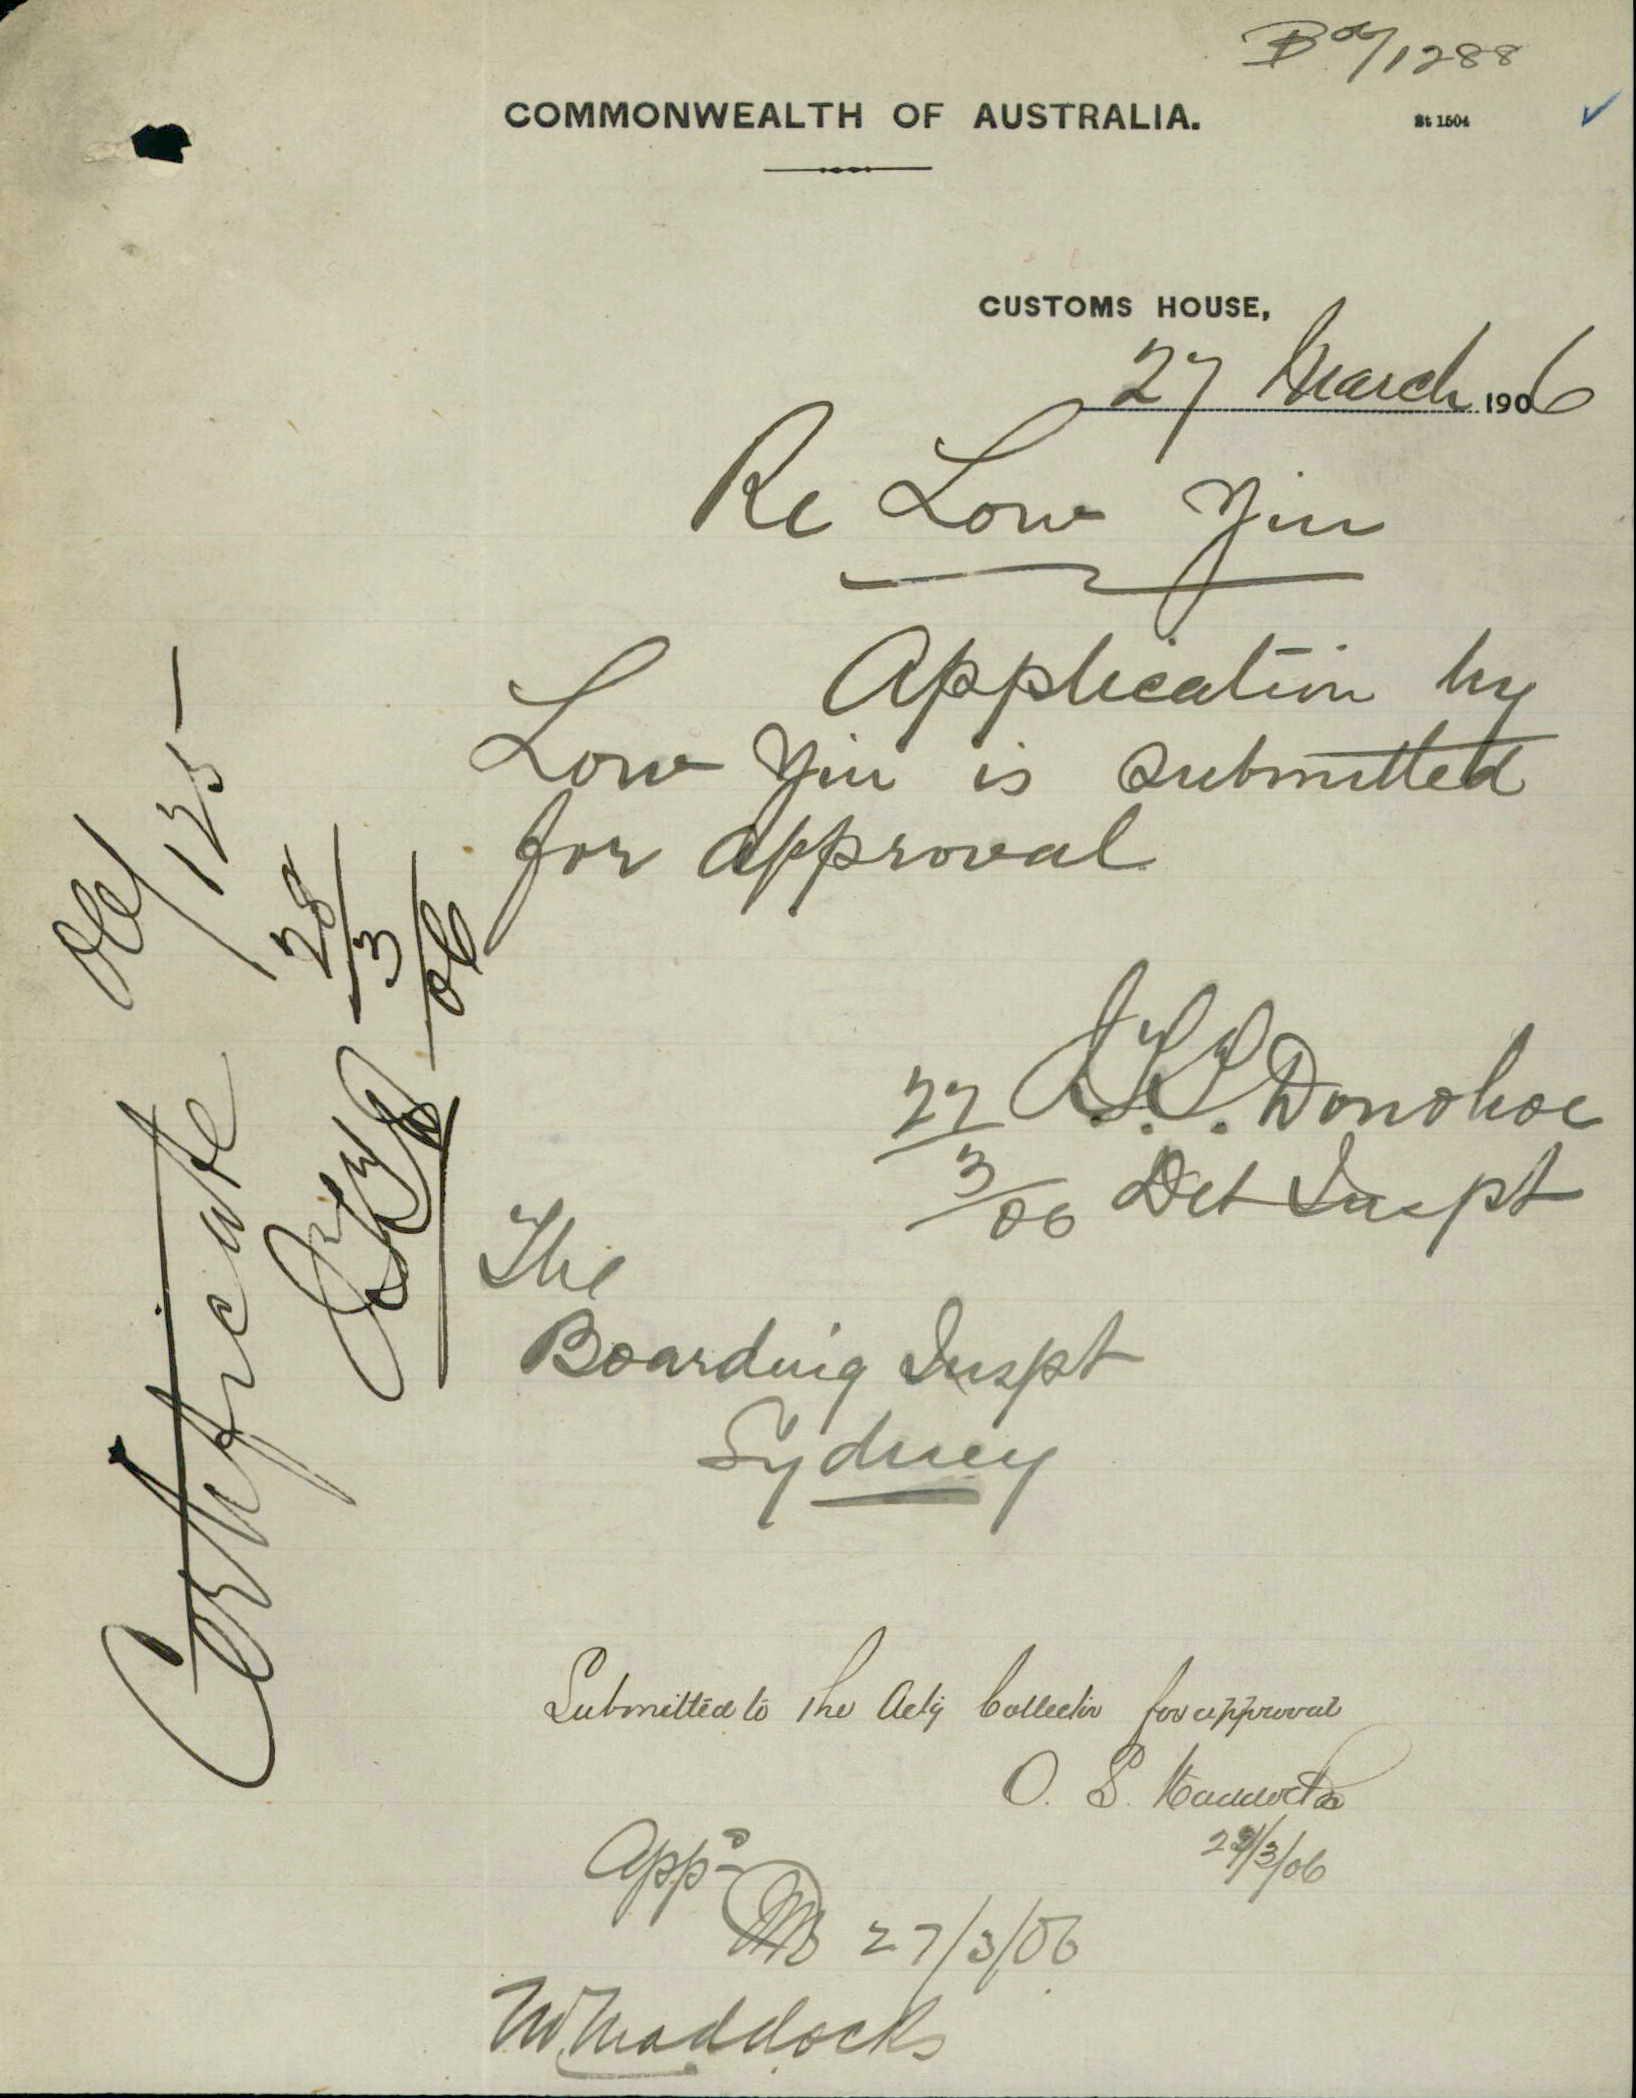 B 06/1288
COMMONWEALTH OF AUSTRALIA.
St 1504
CUSTOMS HOUSE,
27 March 1906
Re Low Yin
Application by
Low Yin is submitted
for approval
J.T.T. Donohoe
27/3/06 Det Inspt
The
Boarding Inspt
Sydney
Certificate 06/125
28/3/06
Submitted to the Actg Collector for approval
O. S. Maddocks
27/3/06
Appd
27/3/06
Mr Maddocks